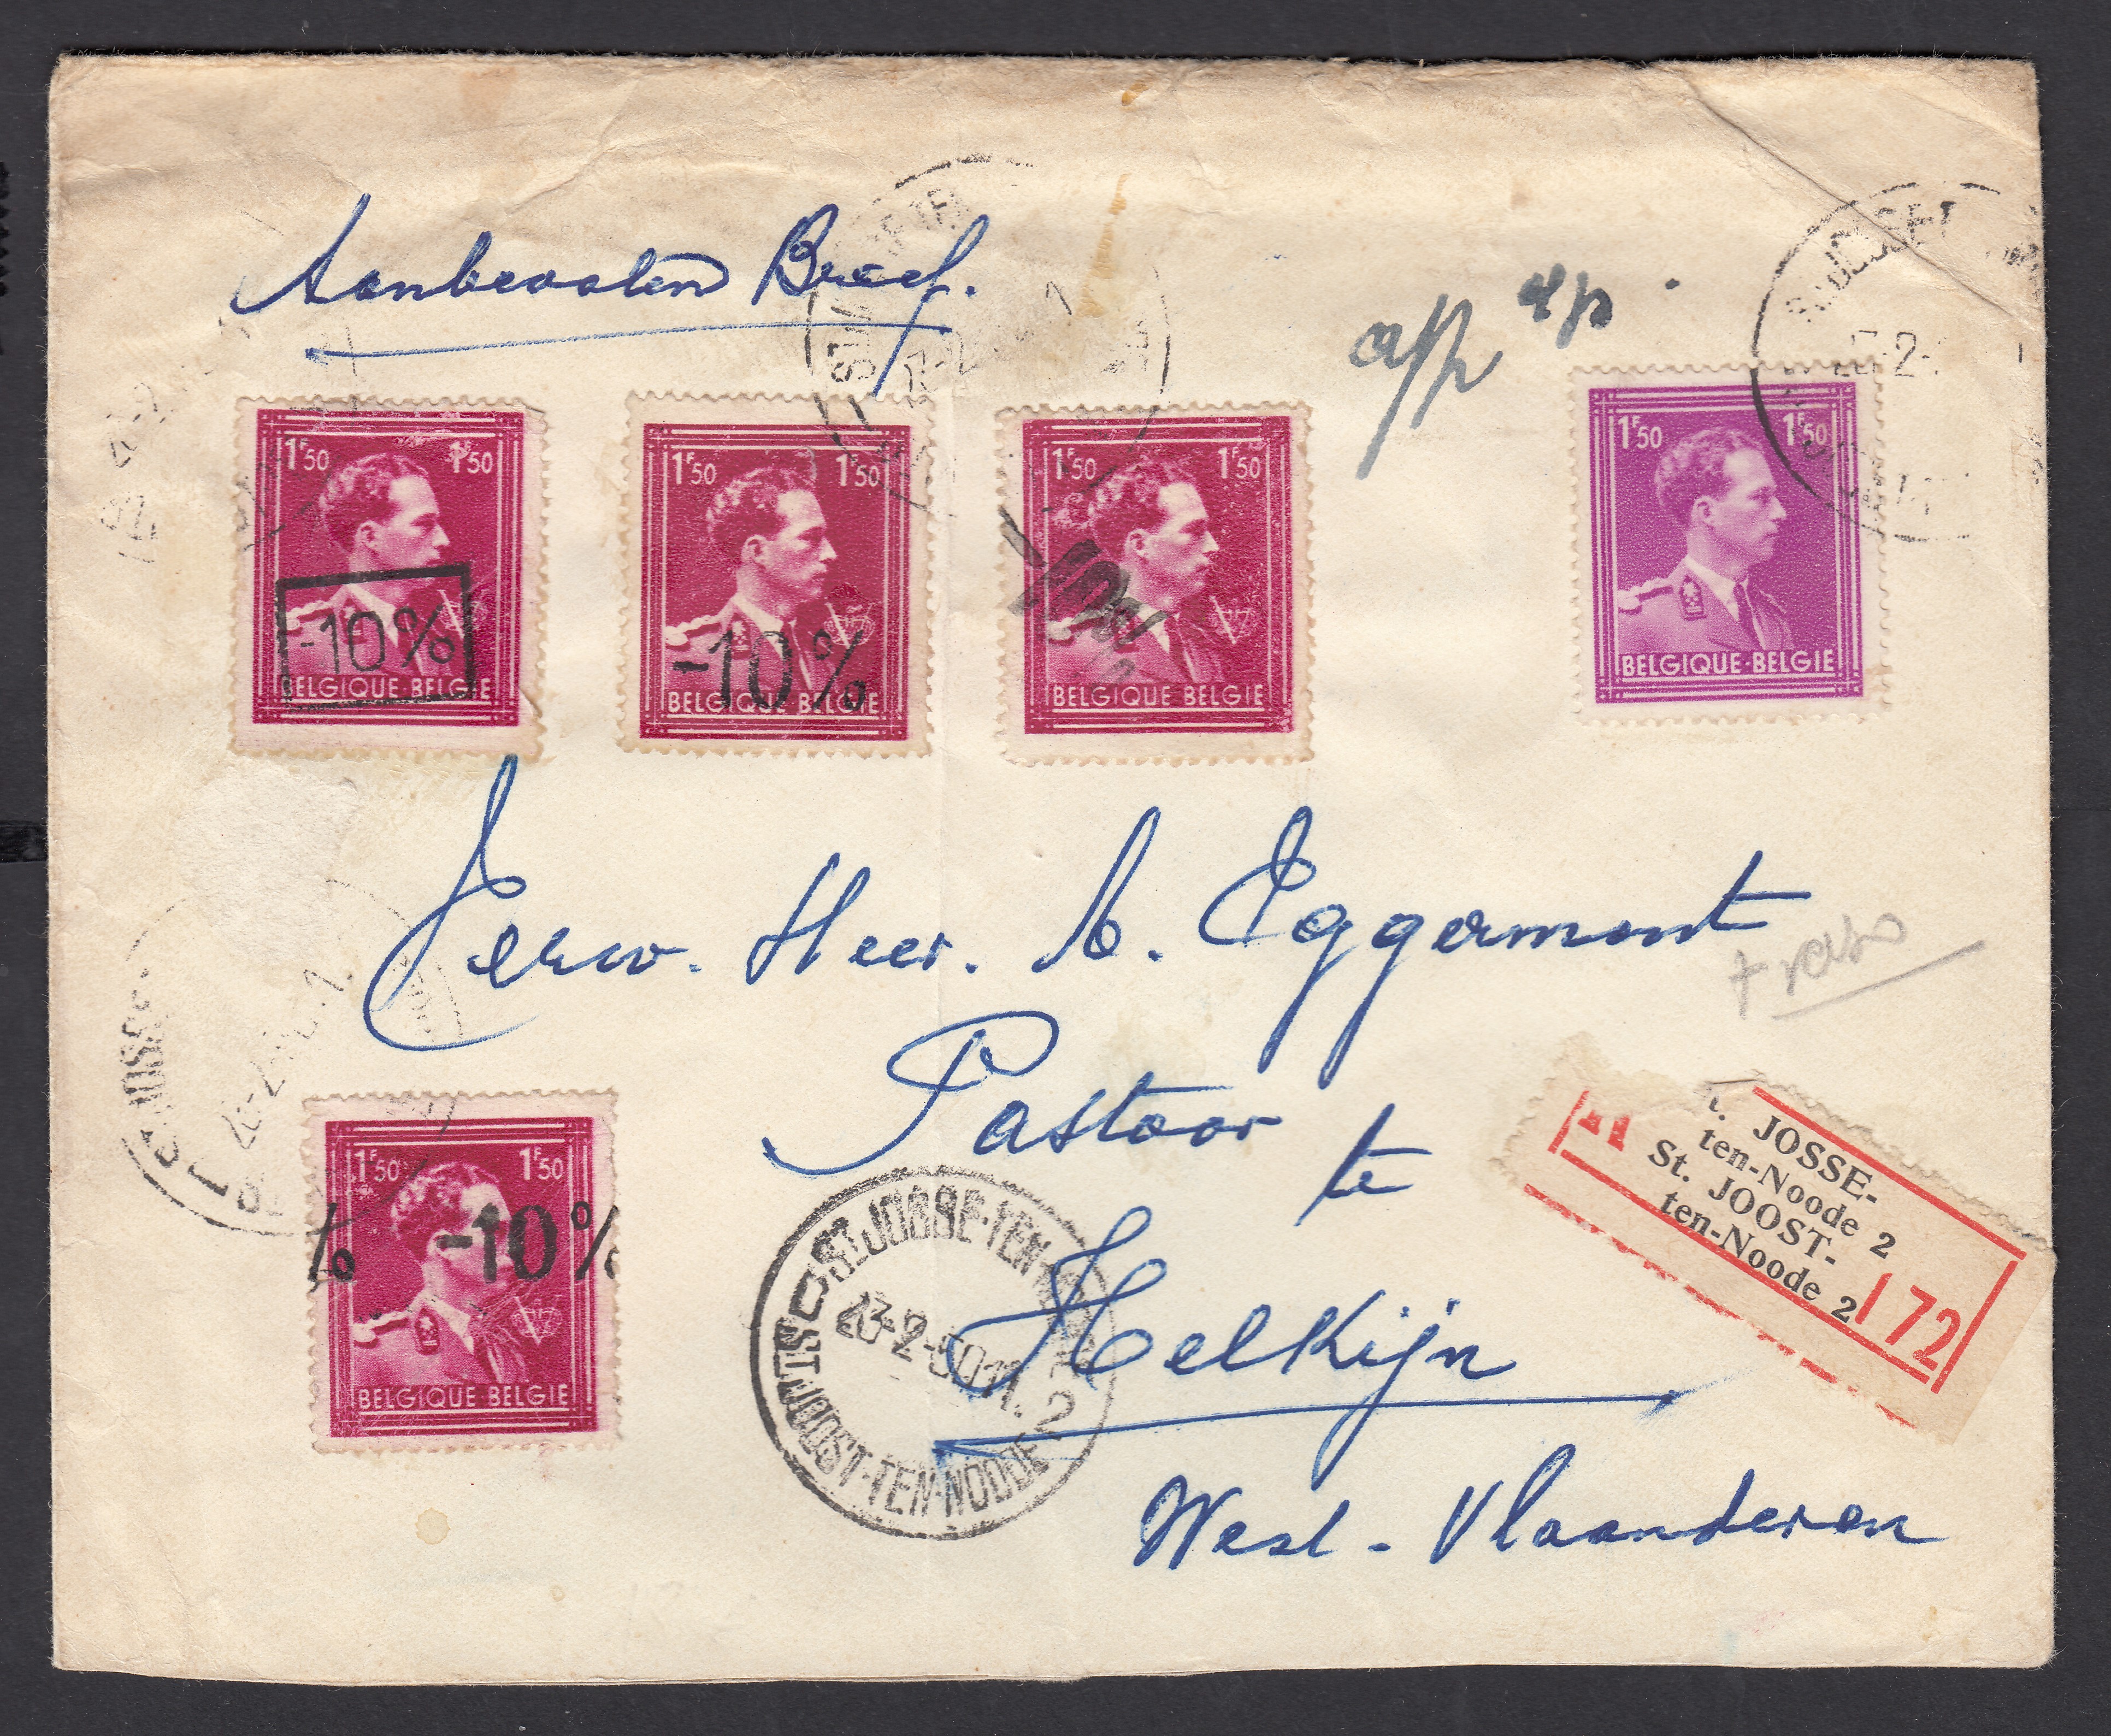 Aanbevolen Brief.
1F50 1F50
-10%
BELGIQUE BELGIE
1F50 1F50
-10%
BELGIQUE BELGIE
1F50 1F50
-10%
BELGIQUE BELGIE
1F50 1F50
BELGIQUE-BELGIE
Eerw. Heer. A. Eggermont
Pastoor
te
Helkijn
West-Vlaanderen
1F50 1F50
% -10%
BELGIQUE BELGIE
ST JOSSE-TEN-
23-2-50 11
2
ST JOOST-TEN-NOODE
t. JOSSE-
ten-Noode 2
St. JOOST-
ten-Noode 2
172